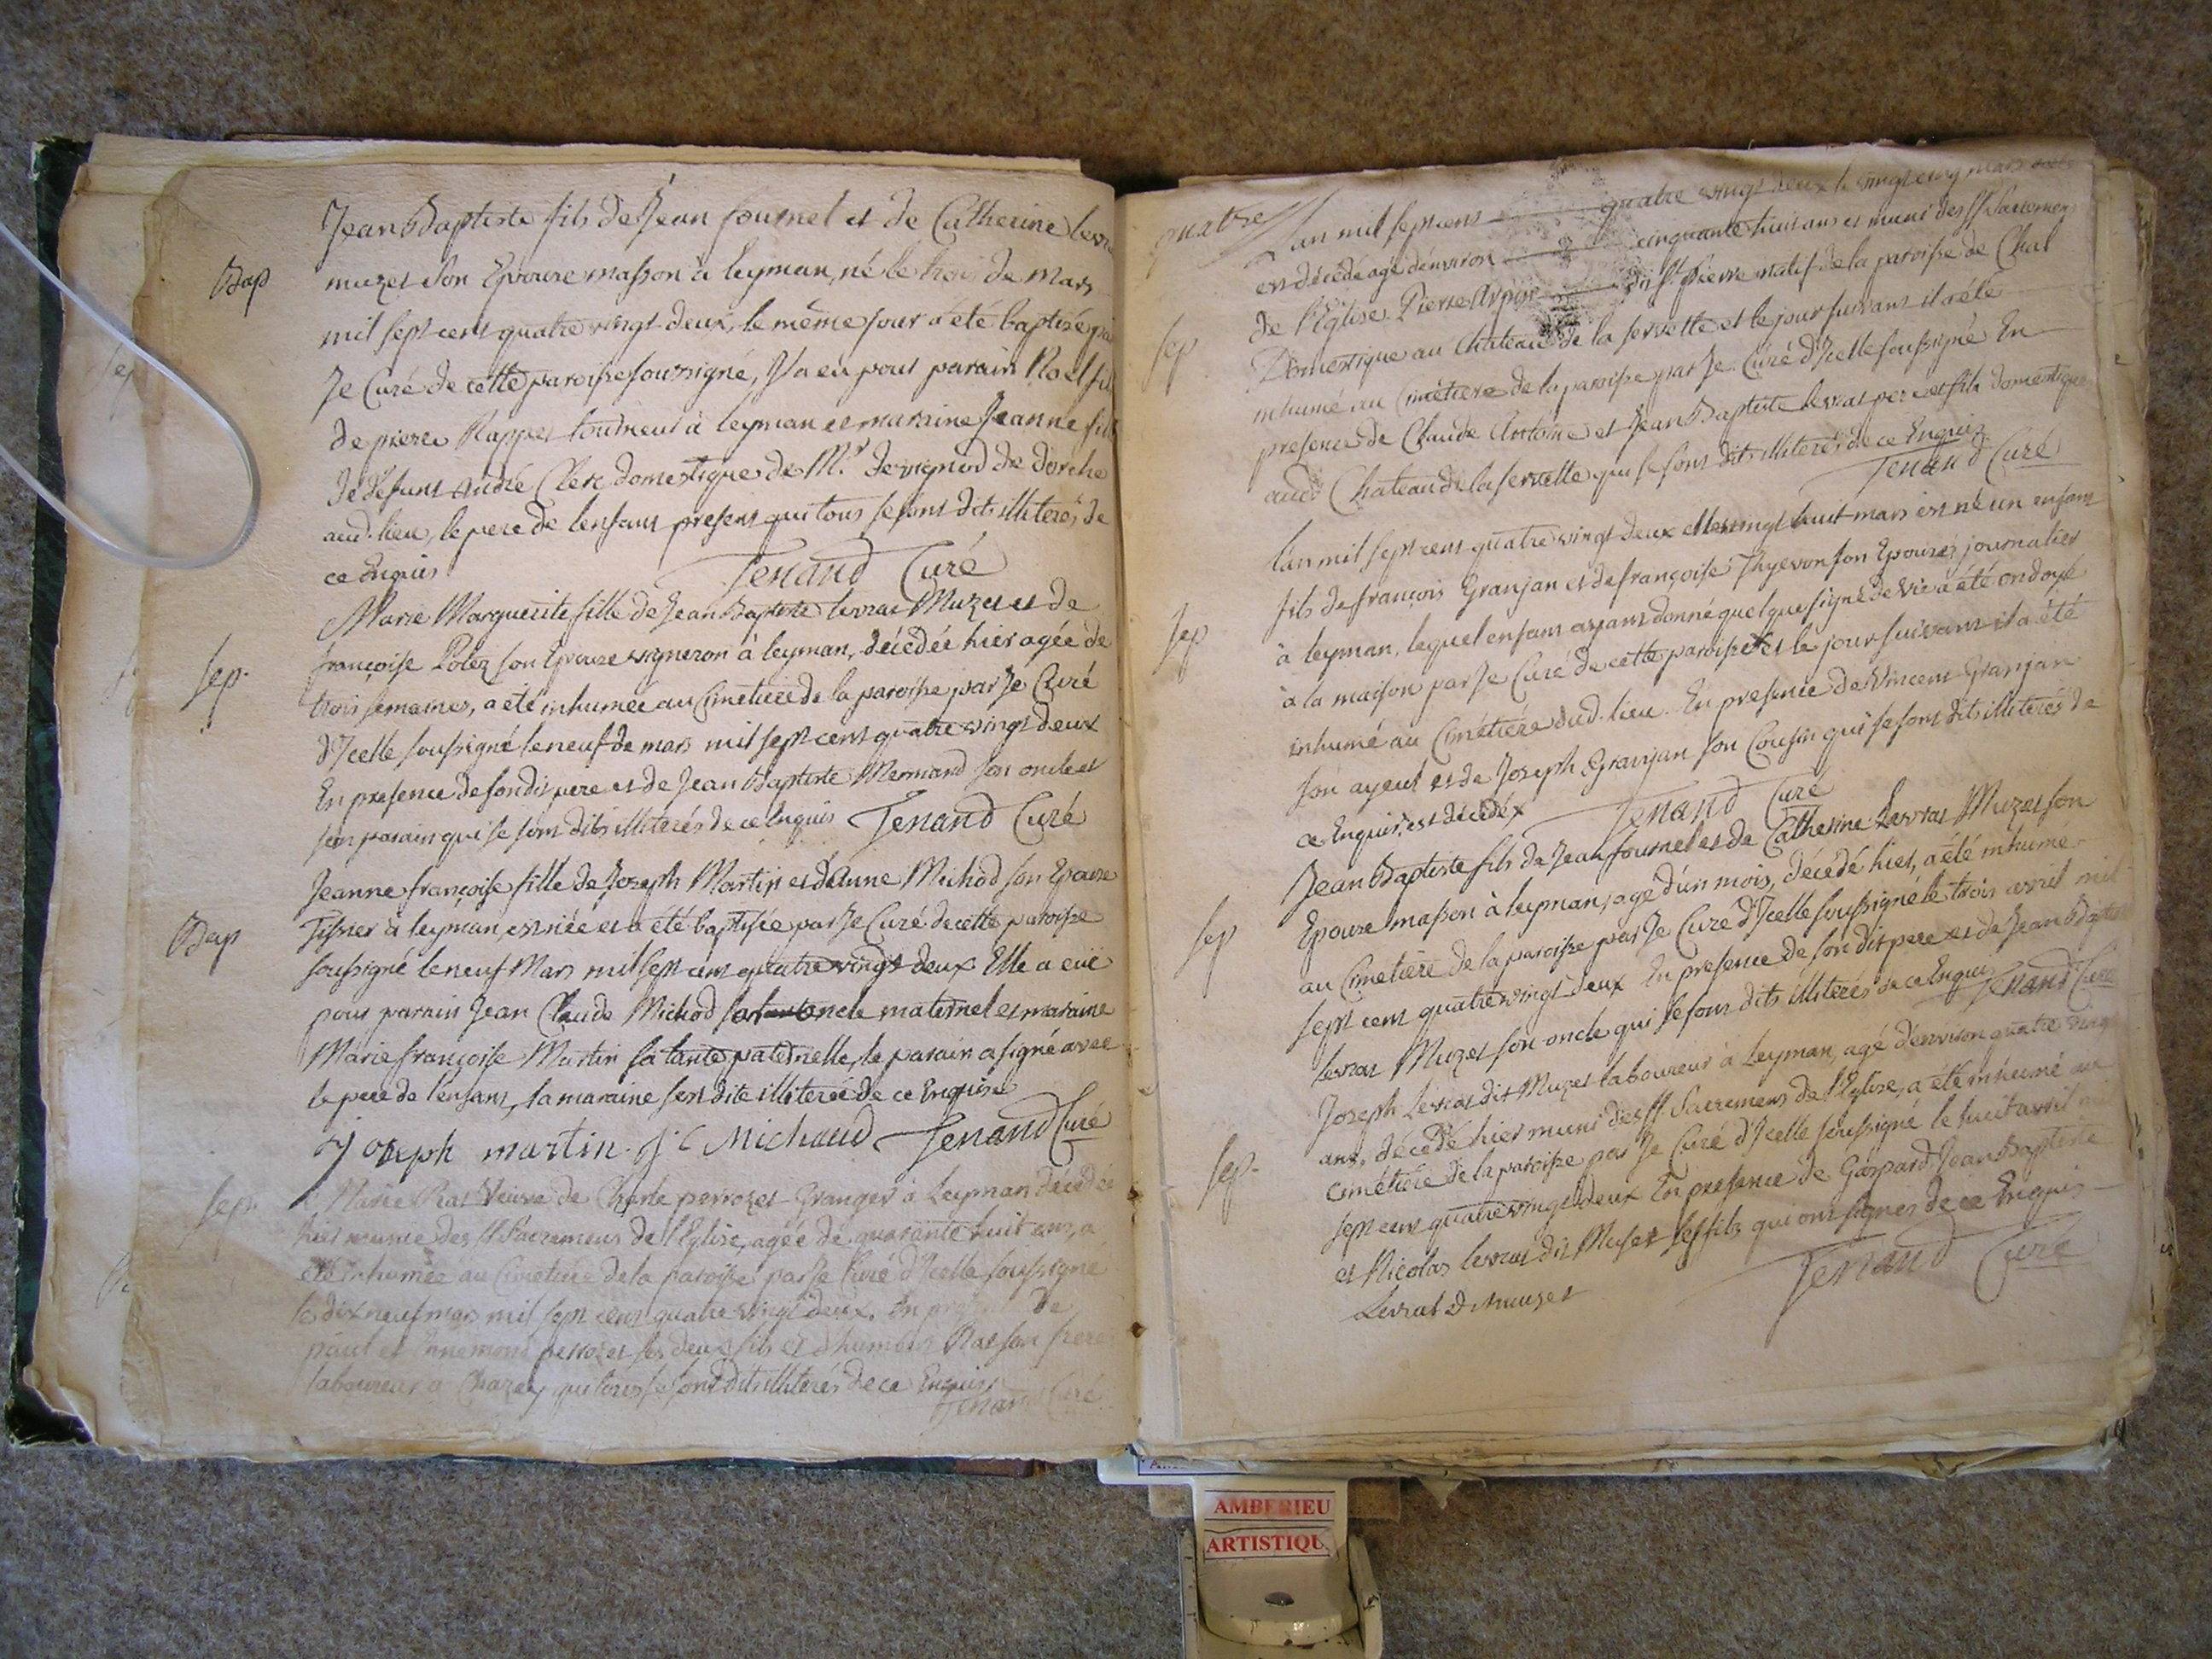 Jean Baptiste fils de Jean fournet et de Catherine levra
Bap
muzet son Epouse masson à leyman, né le trois de mars
mil sept cent quatre vingt deux, le même jour a été baptisé
Je Curé de cette paroisse soussigné, Il a eu pour parain Noel fils
de pierre Rappet à leyman et maraine Jeanne fille
de défunt André Clerc domestique de Mr. de dorche
aud. lieu, le pere de lenfant present qui tous se sont dits illiterés de
ce Enquis
Tenand Curé
Marie Marguerite fille de Jean Baptiste levrat Muzet et de
Sep.
françoise Polez son Epouse vigneron à leyman, décedée hier agée de
trois semaines, a été inhumée au Cimetiere de la paroisse par Je Curé
d'Icelle soussigné le neuf de mars mil sept cent quatre vingt deux
En presence de son dit pere et de Jean Baptiste Mermand son oncle et
son parain qui se sont dits illiterés de ce Enquis Tenand Curé
Jeanne françoise fille de Joseph Martin et d'Anne Michod son Epouse
Bap
Tissier à leyman, est née et a été baptisée par Je Curé de cette paroisse
soussigné le neuf Mars mil sept cent quatre vingt deux Elle a eüe
pour parain Jean Claude Michod oncle maternel et maraine
Marie françoise Martin sa tante paternelle, le parain a signé avec
le pere de lenfant, la maraine sest dite illiterée de ce Enquise
Joseph martin. J C Michaud Tenand Curé
Sep.
Marie Ras Veuve de Charle perrozet Granger à Leyman décedée
hier munie des SS Sacremens de l'Eglise, agée de quarante huit ans, a
été inhumée au Cimetiere de la paroisse par Je Curé d'Icelle soussigné
le dix neuf mars mil sept cent quatre vingt deux. En de
paul et Ennemond perrozet ses deux fils et d'humbert Ras son frere
laboureur a Chazey qui tous se sont dits illiterés de ce Enquis
Tenand Curé
quatre
L'an mil sept cent quatre vingt deux le vingt cinq mars
est décédé agé d'environ cinquante huit ans et muni des SS Sacremens
de l'Eglise Pierre Arpin dit St. Pierre natif de la paroisse de Chal
Sep
Domestique au Chateau de la servette et le jour suivant il a été
inhumé au Cimetiere de la paroisse par Je Curé d'Icelle soussigné En
presence de Claude Antoine et Jean Baptiste levrat pere et fils domestiques
aud. Chateau de la servette qui se sont dits illiterés de ce Enquis
Tenand Curé
L'an mil sept cent quatre vingt deux et le vingt huit mars est né un enfant
fils de françois Granjan et de françoise Thyevon son Epouse, journalier
Sep
à leyman, lequel enfant ayant donné quelque signe de vie a été ondoyé
à la maison par Je Curé de cette paroisse et le jour suivant il a été
inhumé au Cimétiere dud. lieu. En presence de Vincent Granjan
son ayeul et de Joseph Granjan son Cousin qui se sont dits illiterés de
ce Enquis, est décédé
Tenand Curé
Jean Baptiste fils de Jean fournet et de Catherine Levrat Muzet son
Sep
Epouse masson à leyman, agé d'un mois, décédé hier, a été inhumé
au Cimetière de la paroisse par Je Curé d'Icelle soussigné le trois avril mil
sept cent quatre vingt deux En presence de son dit pere et de Jean Baptiste
levrat Muzet son oncle qui se sont dits illiterés de ce Enquis
Tenand Curé
Joseph Levrat dit Muzet laboureur à Leyman, agé d'environ quatre vingt
Sep.
ans, décédé hier muni des SS Sacremens de l'Eglise, a été inhumé au
cimétière de la paroisse par Je Curé d'Icelle soussigné le huit avril
sept cent quatre vingt deux En presence de Gaspard Jean Baptiste
et Nicolas levrat dit Muset ses fils qui ont signés de ce Enquis
Levrat D muzet
Tenand Curé
AMBERIEU
ARTISTIQU